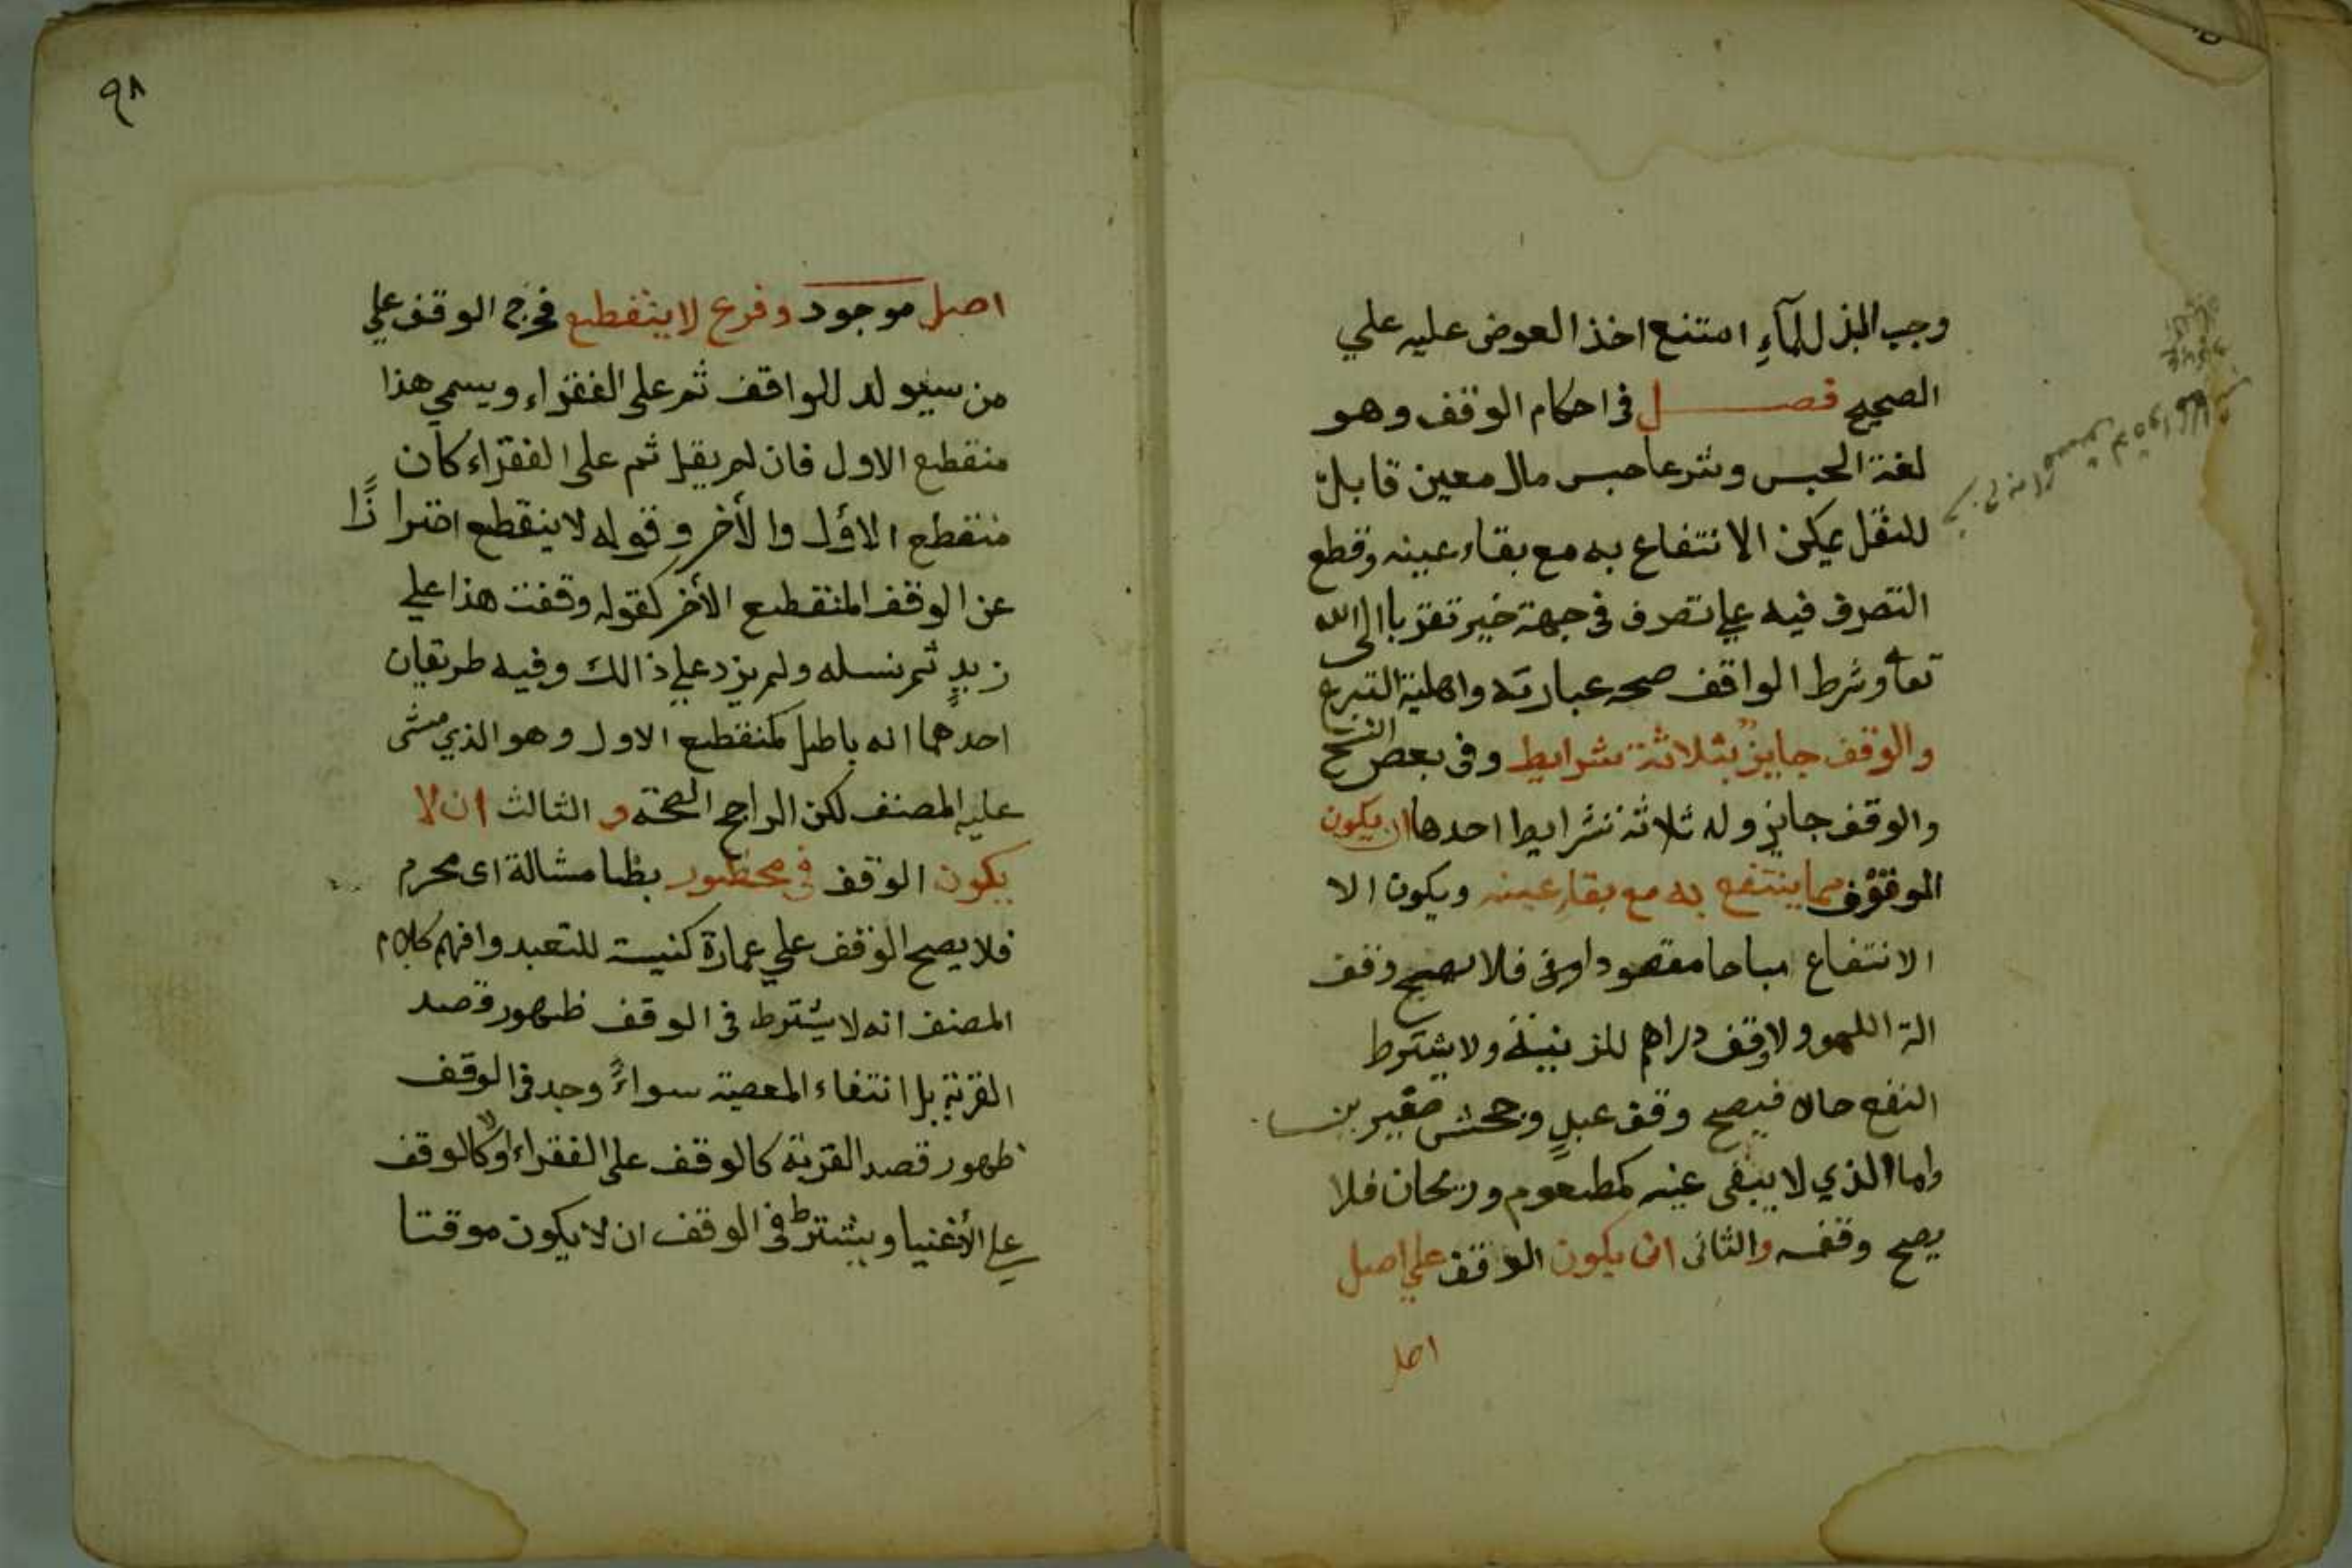 وجب البذل للمآءِ امتنع اخذ العوض عليه علي
الصحيح فصل في احكام الوقف وهو
لغة الحبس وشرعا حبس مال معين قابل
للنقل يمكن الانتفاع به مع بقاء عينه وقطع
التصرف فيه علي تصرف في جهة خير تقربا الى الله
تعا وشرط الواقف صحه عبارته واهلية التبرع
والوقف جايز بثلاثة شرايط وفى بعض النسخ
والوقف جايز وله ثلاثة شرايط احدها ان يكون
الموقوف مما ينتفع به مع بقاء عينه ويكون الا
الانتفاع مباحا مقصودا فلا يصح وقف
الة اللهو ولا وقف دراهم للزينة ولا يشترط
النفع حالا فيصح وقف عبدٍ وجحش صغيرين
واما الذي لا يبقى عينه كمطعوم وريحان فلا
يصح وقفه والثانى ان يكون الوقف علي اصل
اصل
٩٨
اصل موجود وفرع لا ينقطع فخرج الوقف علي
من سيولد للواقف ثم على الفقراء ويسمي هذا
منقطع الاول فان لم يقل ثم على الفقراء كان
منقطع الاول والأخر وقوله لا ينقطع احترازًا
عن الوقف المنقطع الأخر كقوله وقفت هذا علي
زيدٍ ثم نسله ولم يزد علي ذالك وفيه طريقان
احدهما انه باطل كمنقطع الاول وهو الذي مشى
عليه المصنف لكن الراجح الصحة و الثالث ان لا
يكون الوقف في محظور بظا مشالة اى محرم
فلا يصح الوقف علي عمارة كنيسة للتعبد وافهم كلام
المصنف انه لا يشترط فى الوقف ظهور قصد
القربة بل انتفاء المعصية سواءً وجد في الوقف
ظهور قصد القربة كالوقف على الفقراء اولا كالوقف
على الأغنيا ويشترط في الوقف ان لا يكون موقتا